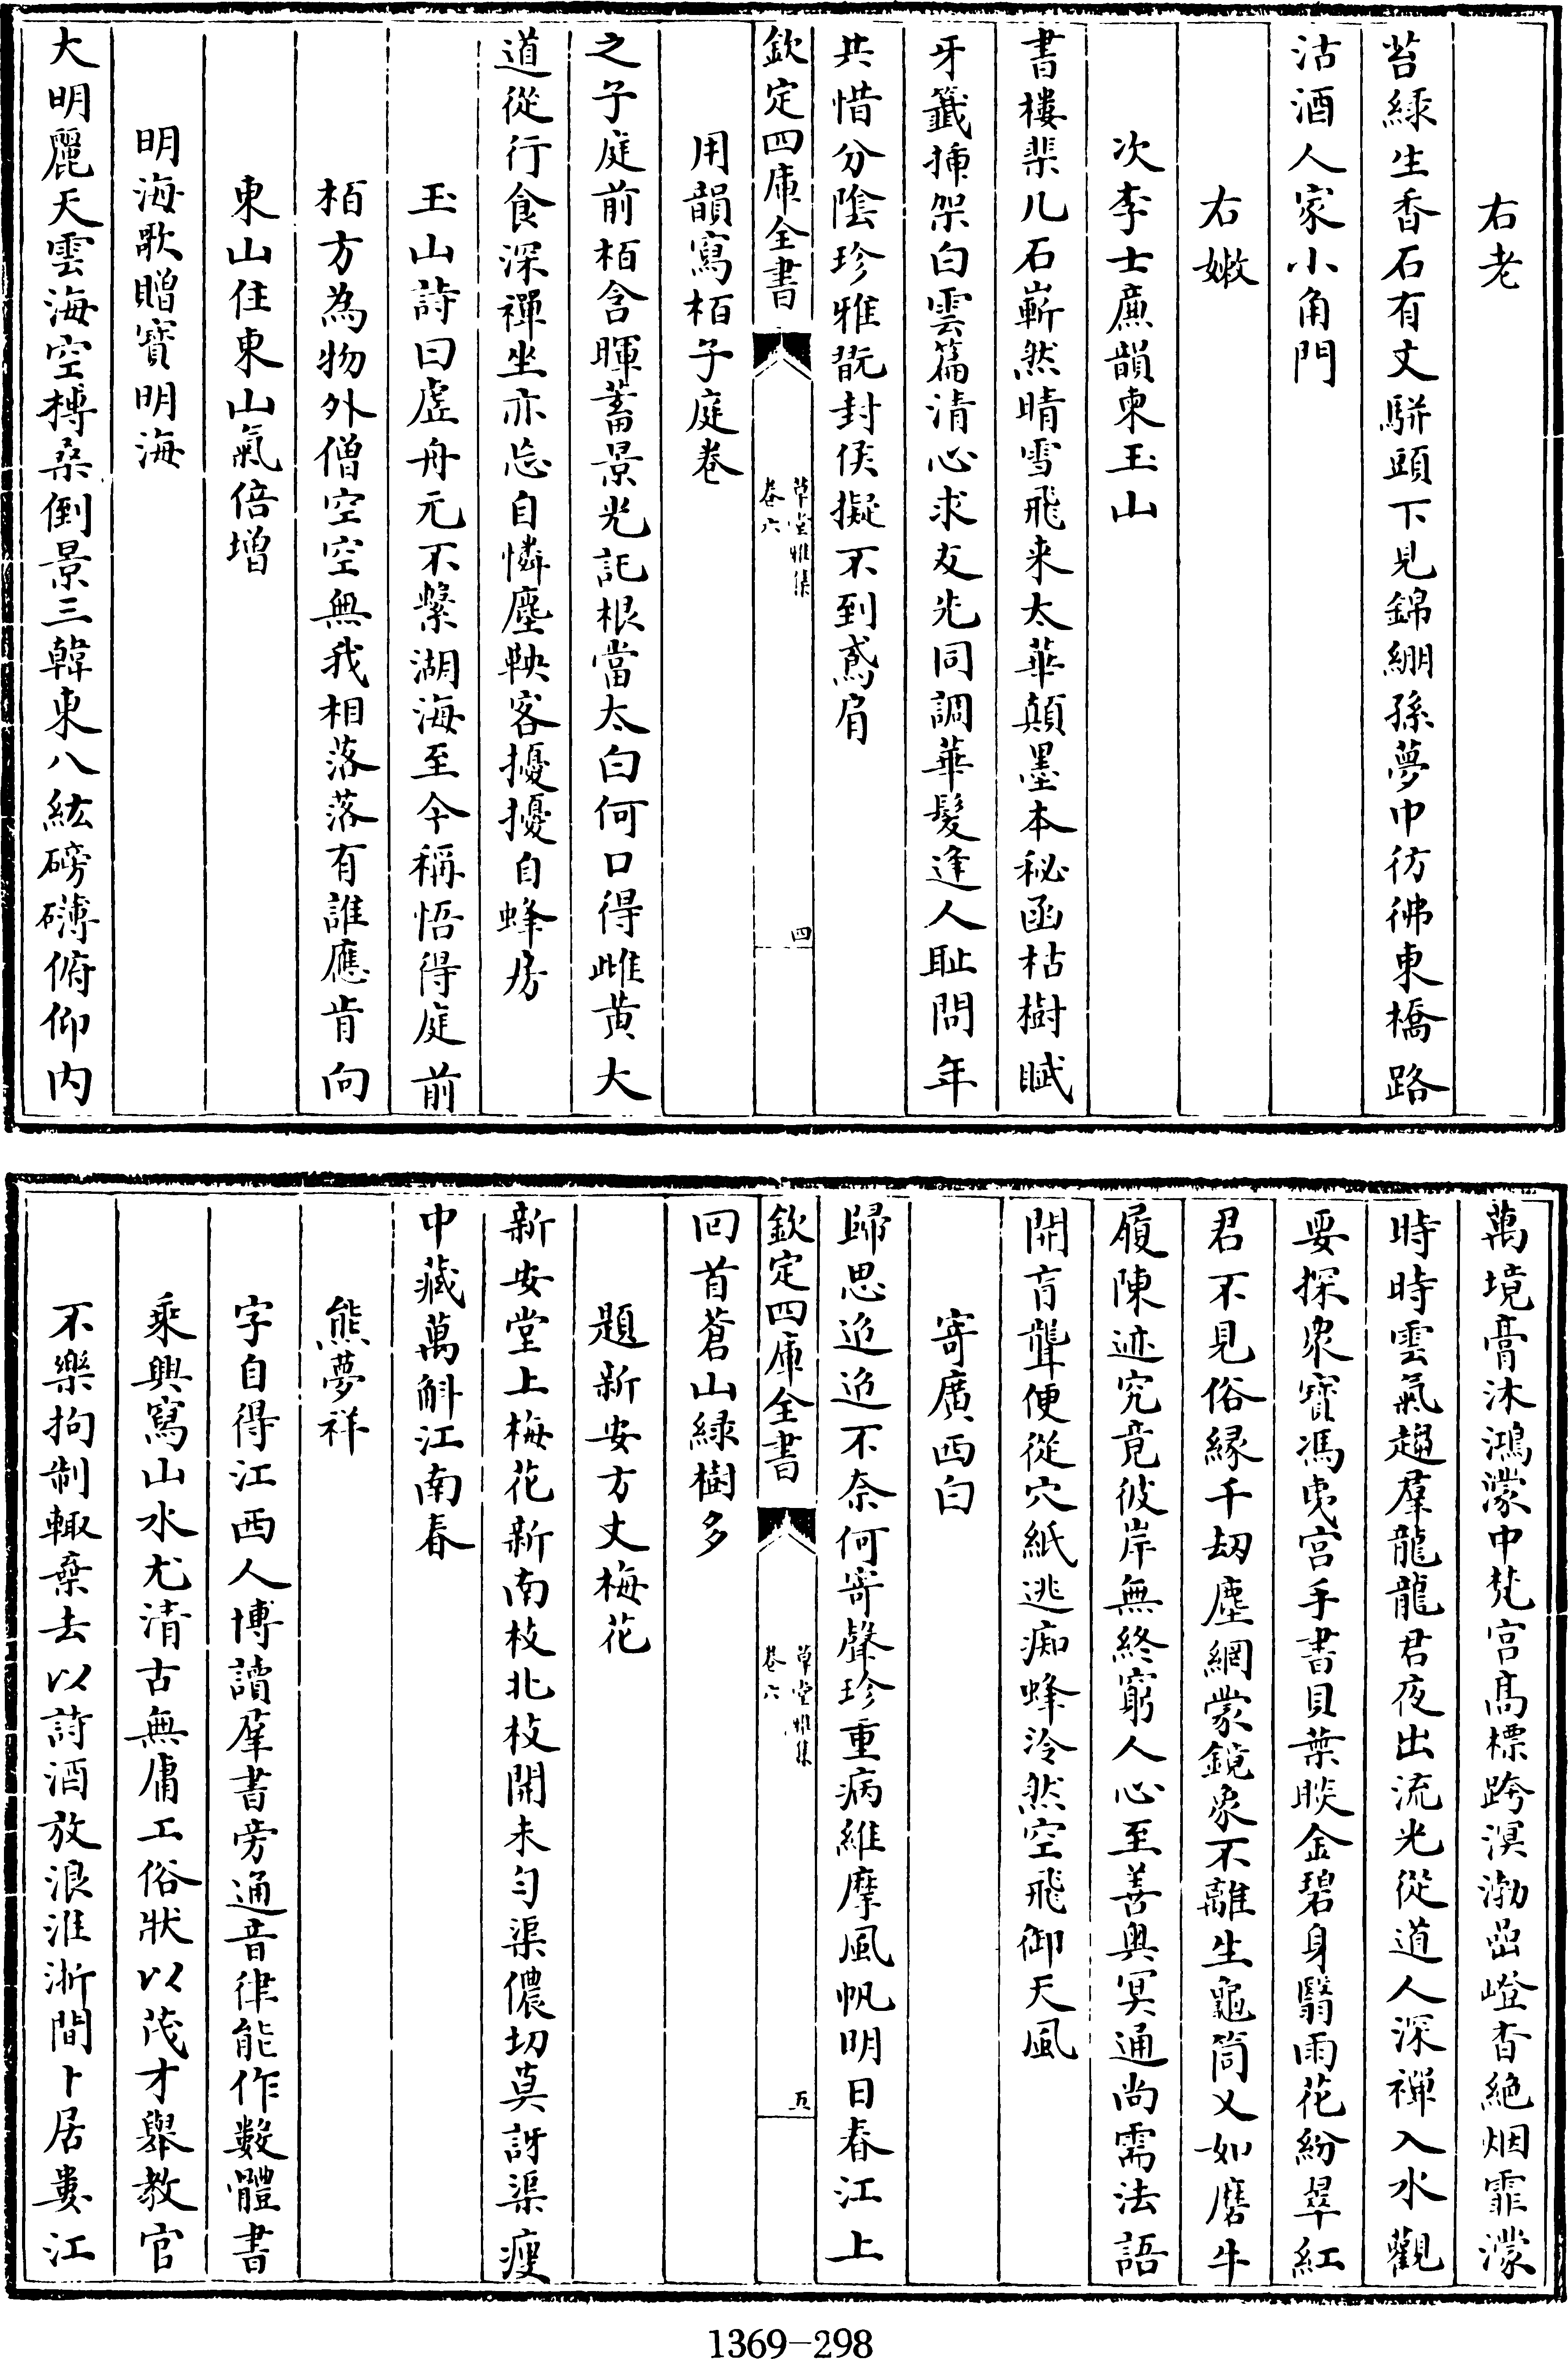 右老
苔緑生香石有文駢頭下見錦綳孫夢巾彷彿東橋路
沽酒人家小角門
右嫩
次李士廉韻柬玉山
書樓棐几石嶄然晴雪飛来太華顛墨本秘函枯樹賦
牙籤揷架白雲篇清心求友先同調華髮逢人耻問年
共惜分陰珍雅翫封侯擬不到鳶肩
欽定四庫全書
草堂雅集
卷六
四
用韻寫栢子庭卷
之子庭前栢含暉蓄景光託根當太白何口得雌黄大
道從行食深禪坐亦忘自憐塵鞅客擾擾自蜂房
玉山詩曰虚舟元不繫湖海至今稱悟得庭前
栢方為物外僧空空無我相落落有誰應肯向
東山住東山氣倍增
明海歌贈寳明海
大明麗天雲海空榑桑倒景三韓東八紘磅礴俯仰内
萬境膏沐鴻濛中梵宫髙標跨溟渤嵒嶝杳絶烟霏濛
時時雲氣趨羣龍龍君夜出流光從道人深禪入水觀
要探衆寳馮夷宫手書貝葉睒金碧身翳雨花紛翠紅
君不見俗縁千刼塵網蒙鏡象不離生龜筒又如磨牛
履陳迹究竟彼岸無終窮人心至善與冥通尚需法語
開肓聾便從穴紙逃痴蜂泠然空飛御天風
寄廣西白
歸思迢迢不奈何寄聲珍重病維摩風帆明日春江上
欽定四庫全書
草堂雅集
卷六
五
回首蒼山緑樹多
題新安方丈梅花
新安堂上梅花新南枝北枝開未匀渠儂切莫訝渠瘦
中藏萬斛江南春
熊夢祥
字自得江西人博讀羣書旁通音律能作數體書
乘興寫山水尤清古無庸工俗狀以茂才舉教官
不樂拘制輙棄去以詩酒放浪淮浙間卜居婁江
1369-298